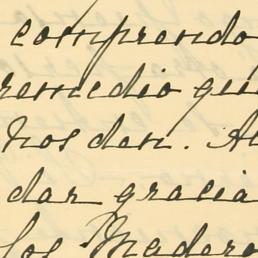 comprendo
remedio que
nos dan. A
dar gracia
los Madero